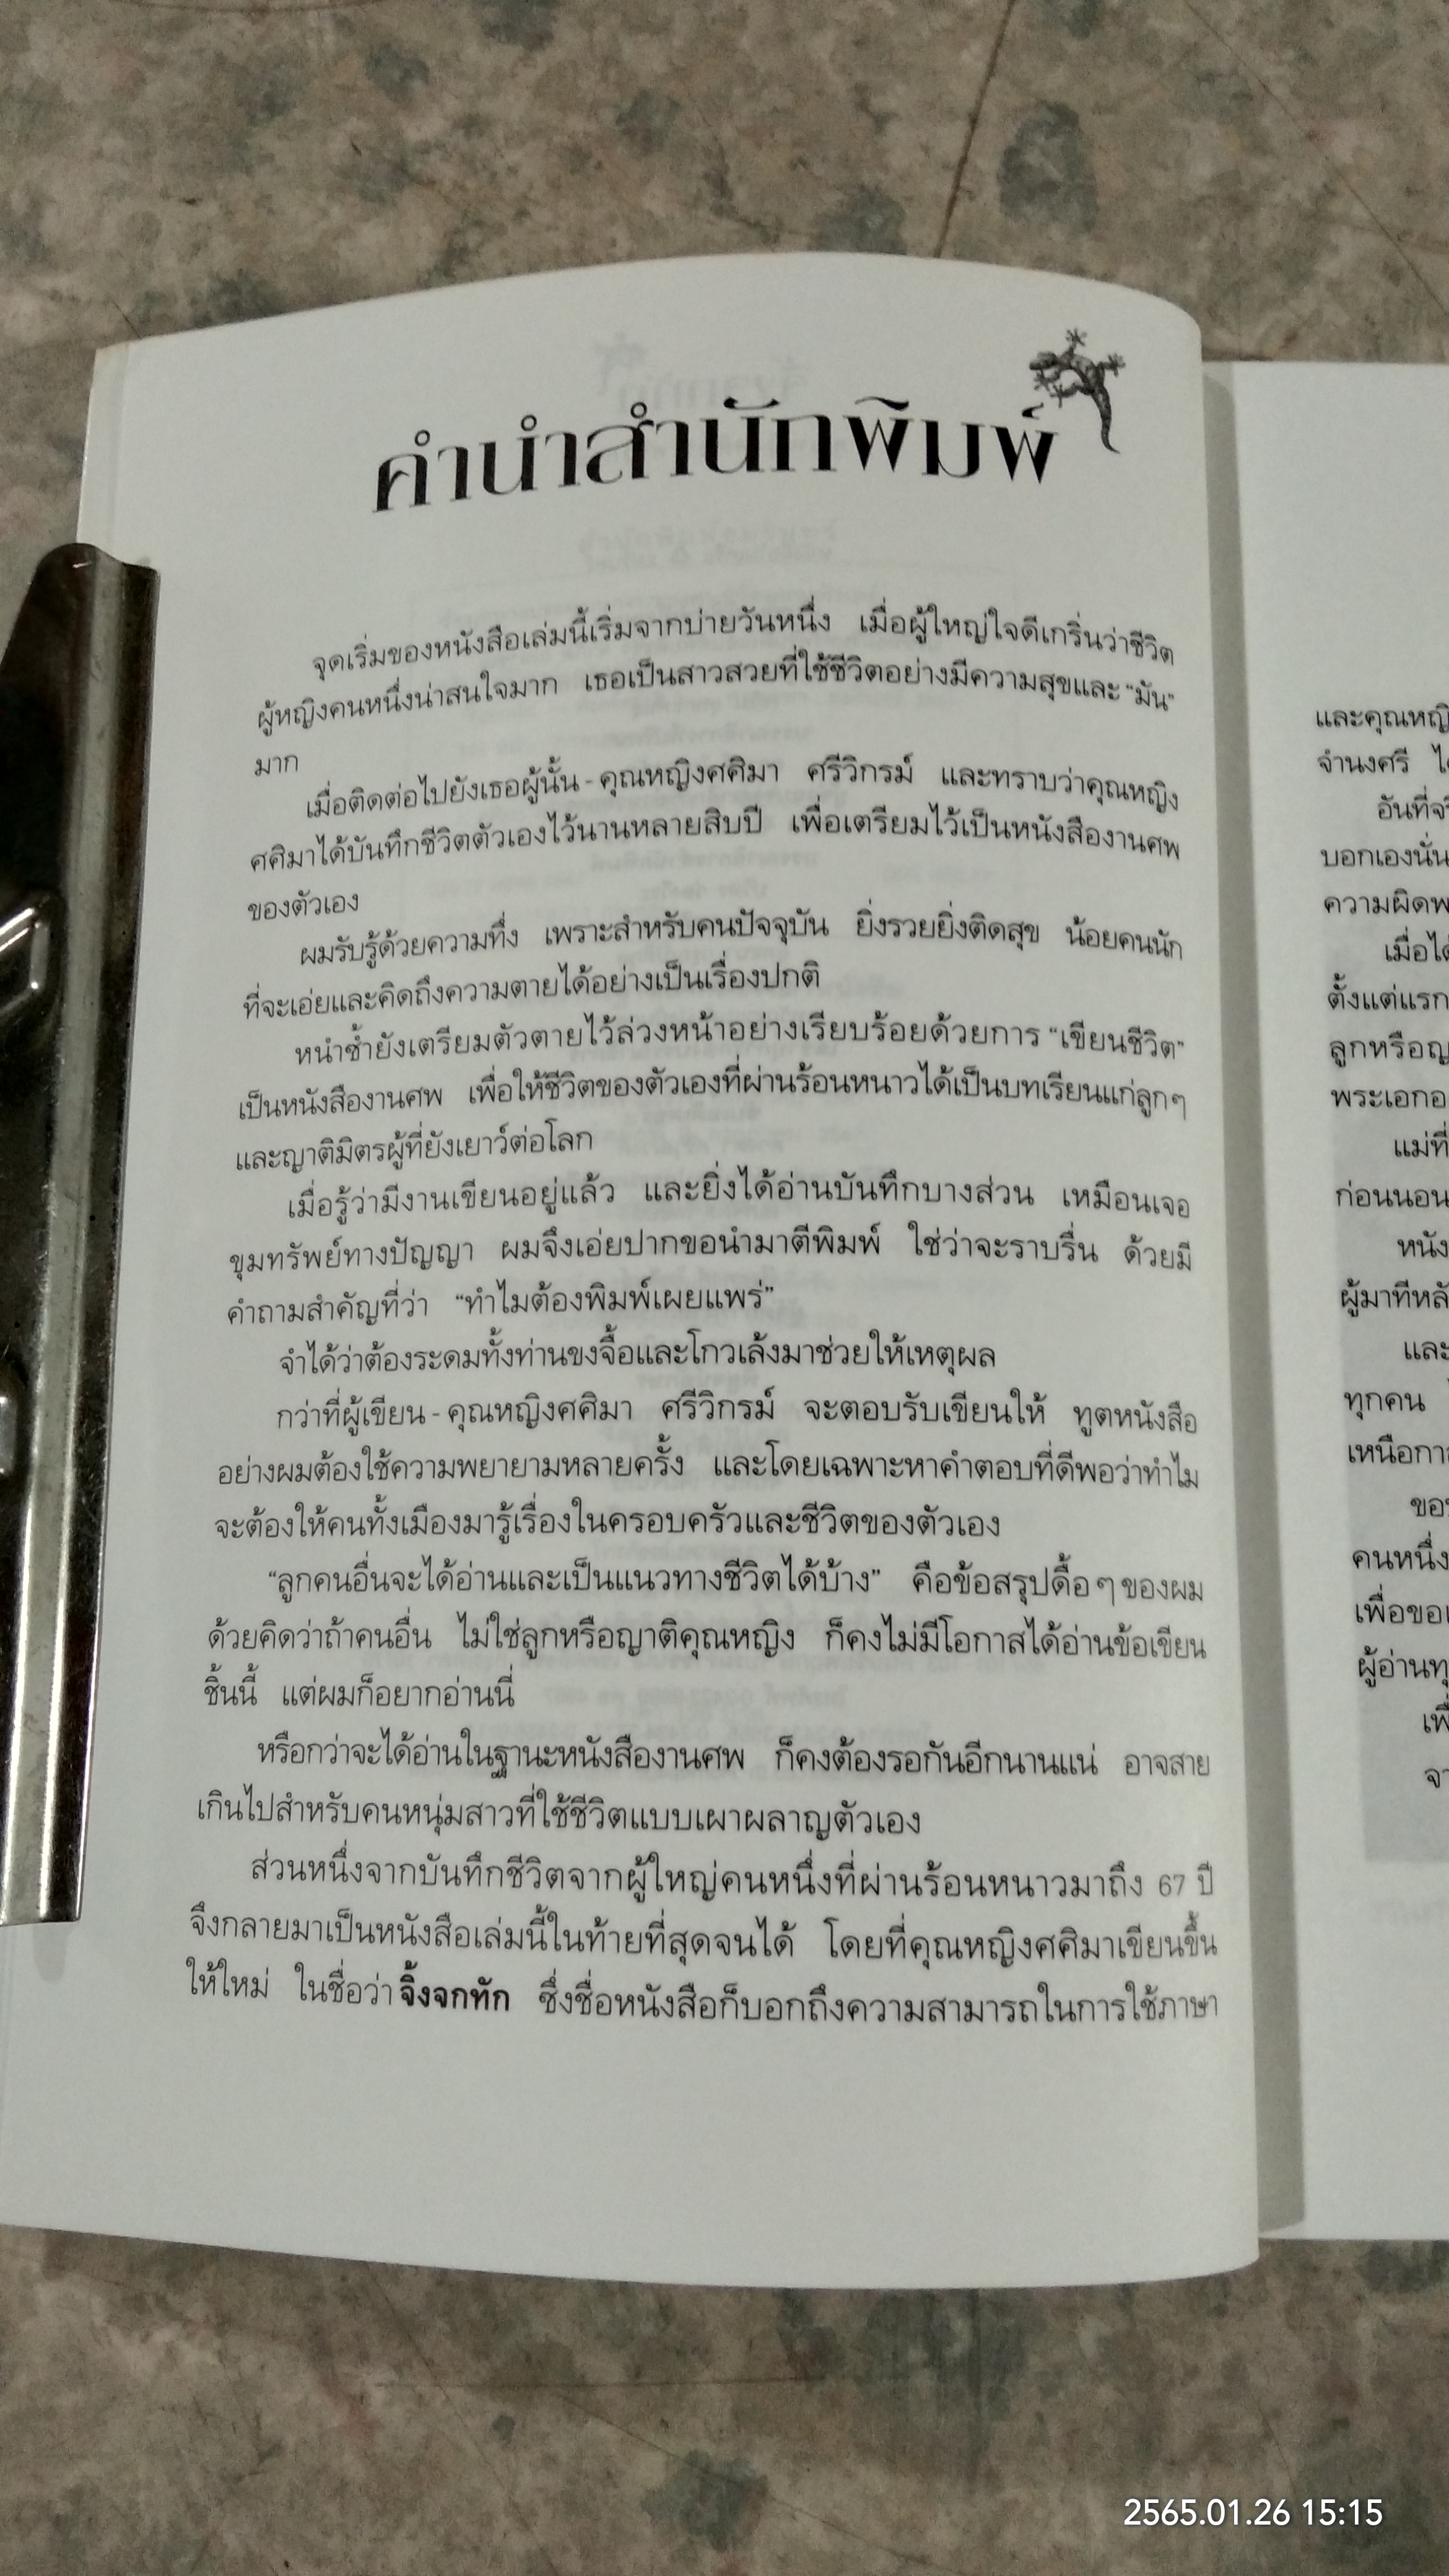 คำนำสำนักพิมพ์
จุดเริ่มของหนังสือเล่มนี้เริ่มจากบ่ายวันหนึ่ง เมื่อผู้ใหญ่ใจดีเกริ่นว่าชีวิต
ผู้หญิงคนหนึ่งน่าสนใจมาก เธอเป็นสาวสวยที่ใช้ชีวิตอย่างมีความสุขและ “มัน”
มาก
เมื่อติดต่อไปยังเธอผู้นั้น - คุณหญิงศศิมา ศรีวิกรม์ และทราบว่าคุณหญิง
ศศิมาได้บันทึกชีวิตตัวเองไว้นานหลายสิบปี เพื่อเตรียมไว้เป็นหนังสืองานศพ
ของตัวเอง
ผมรับรู้ด้วยความทึ่ง เพราะสำหรับคนปัจจุบัน ยิ่งรวยยิ่งติดสุข น้อยคนนัก
ที่จะเอ่ยและคิดถึงความตายได้อย่างเป็นเรื่องปกติ
หนำซ้ำยังเตรียมตัวตายไว้ล่วงหน้าอย่างเรียบร้อยด้วยการ “เขียนชีวิต”
เป็นหนังสืองานศพ เพื่อให้ชีวิตของตัวเองที่ผ่านร้อนหนาวได้เป็นบทเรียนแก่ลูกๆ
และญาติมิตรผู้ที่ยังเยาว์ต่อโลก
เมื่อรู้ว่ามีงานเขียนอยู่แล้ว และยิ่งได้อ่านบันทึกบางส่วน เหมือนเจอ
ขุมทรัพย์ทางปัญญา ผมจึงเอ่ยปากขอนำมาตีพิมพ์ ใช่ว่าจะราบรื่น ด้วยมี
คำถามสำคัญที่ว่า “ทำไมต้องพิมพ์เผยแพร่”
จำได้ว่าต้องระดมทั้งท่านขงจื้อและโกวเล้งมาช่วยให้เหตุผล
กว่าที่ผู้เขียน - คุณหญิงศศิมา ศรีวิกรม์ จะตอบรับเขียนให้ ทูตหนังสือ
อย่างผมต้องใช้ความพยายามหลายครั้ง และโดยเฉพาะหาคำตอบที่ดีพอว่าทำไม
จะต้องให้คนทั้งเมืองมารู้เรื่องในครอบครัวและชีวิตของตัวเอง
“ลูกคนอื่นจะได้อ่านและเป็นแนวทางชีวิตได้บ้าง” คือข้อสรุปดื้อๆ ของผม
ด้วยคิดว่าถ้าคนอื่น ไม่ใช่ลูกหรือญาติคุณหญิง ก็คงไม่มีโอกาสได้อ่านข้อเขียน
ชิ้นนี้ แต่ผมก็อยากอ่านนี่
หรือกว่าจะได้อ่านในฐานะหนังสืองานศพ ก็คงต้องรอกันอีกนานแน่ อาจสาย
เกินไปสำหรับคนหนุ่มสาวที่ใช้ชีวิตแบบเผาผลาญตัวเอง
ส่วนหนึ่งจากบันทึกชีวิตจากผู้ใหญ่คนหนึ่งที่ผ่านร้อนหนาวมาถึง 67 ปี
จึงกลายมาเป็นหนังสือเล่มนี้ในท้ายที่สุดจนได้ โดยที่คุณหญิงศศิมาเขียนขึ้น
ให้ใหม่ ในชื่อว่า จิ้งจกทัก ซึ่งชื่อหนังสือก็บอกถึงความสามารถในการใช้ภาษา
และคุณหญิ
จำนงศรี
อันที่จริ
บอกเองนั่น
ความผิดพ
เมื่อได้
ตั้งแต่แรก
ลูกหรือญ
พระเอกอ
แม่ที่
ก่อนนอน
หนัง
ผู้มาทีหลั
และ
ทุกคน
เหนือกา
ขอ
คนหนึ่ง
เพื่อขอ
ผู้อ่านทุ
เพื่
จา
2565.01.26 15:15